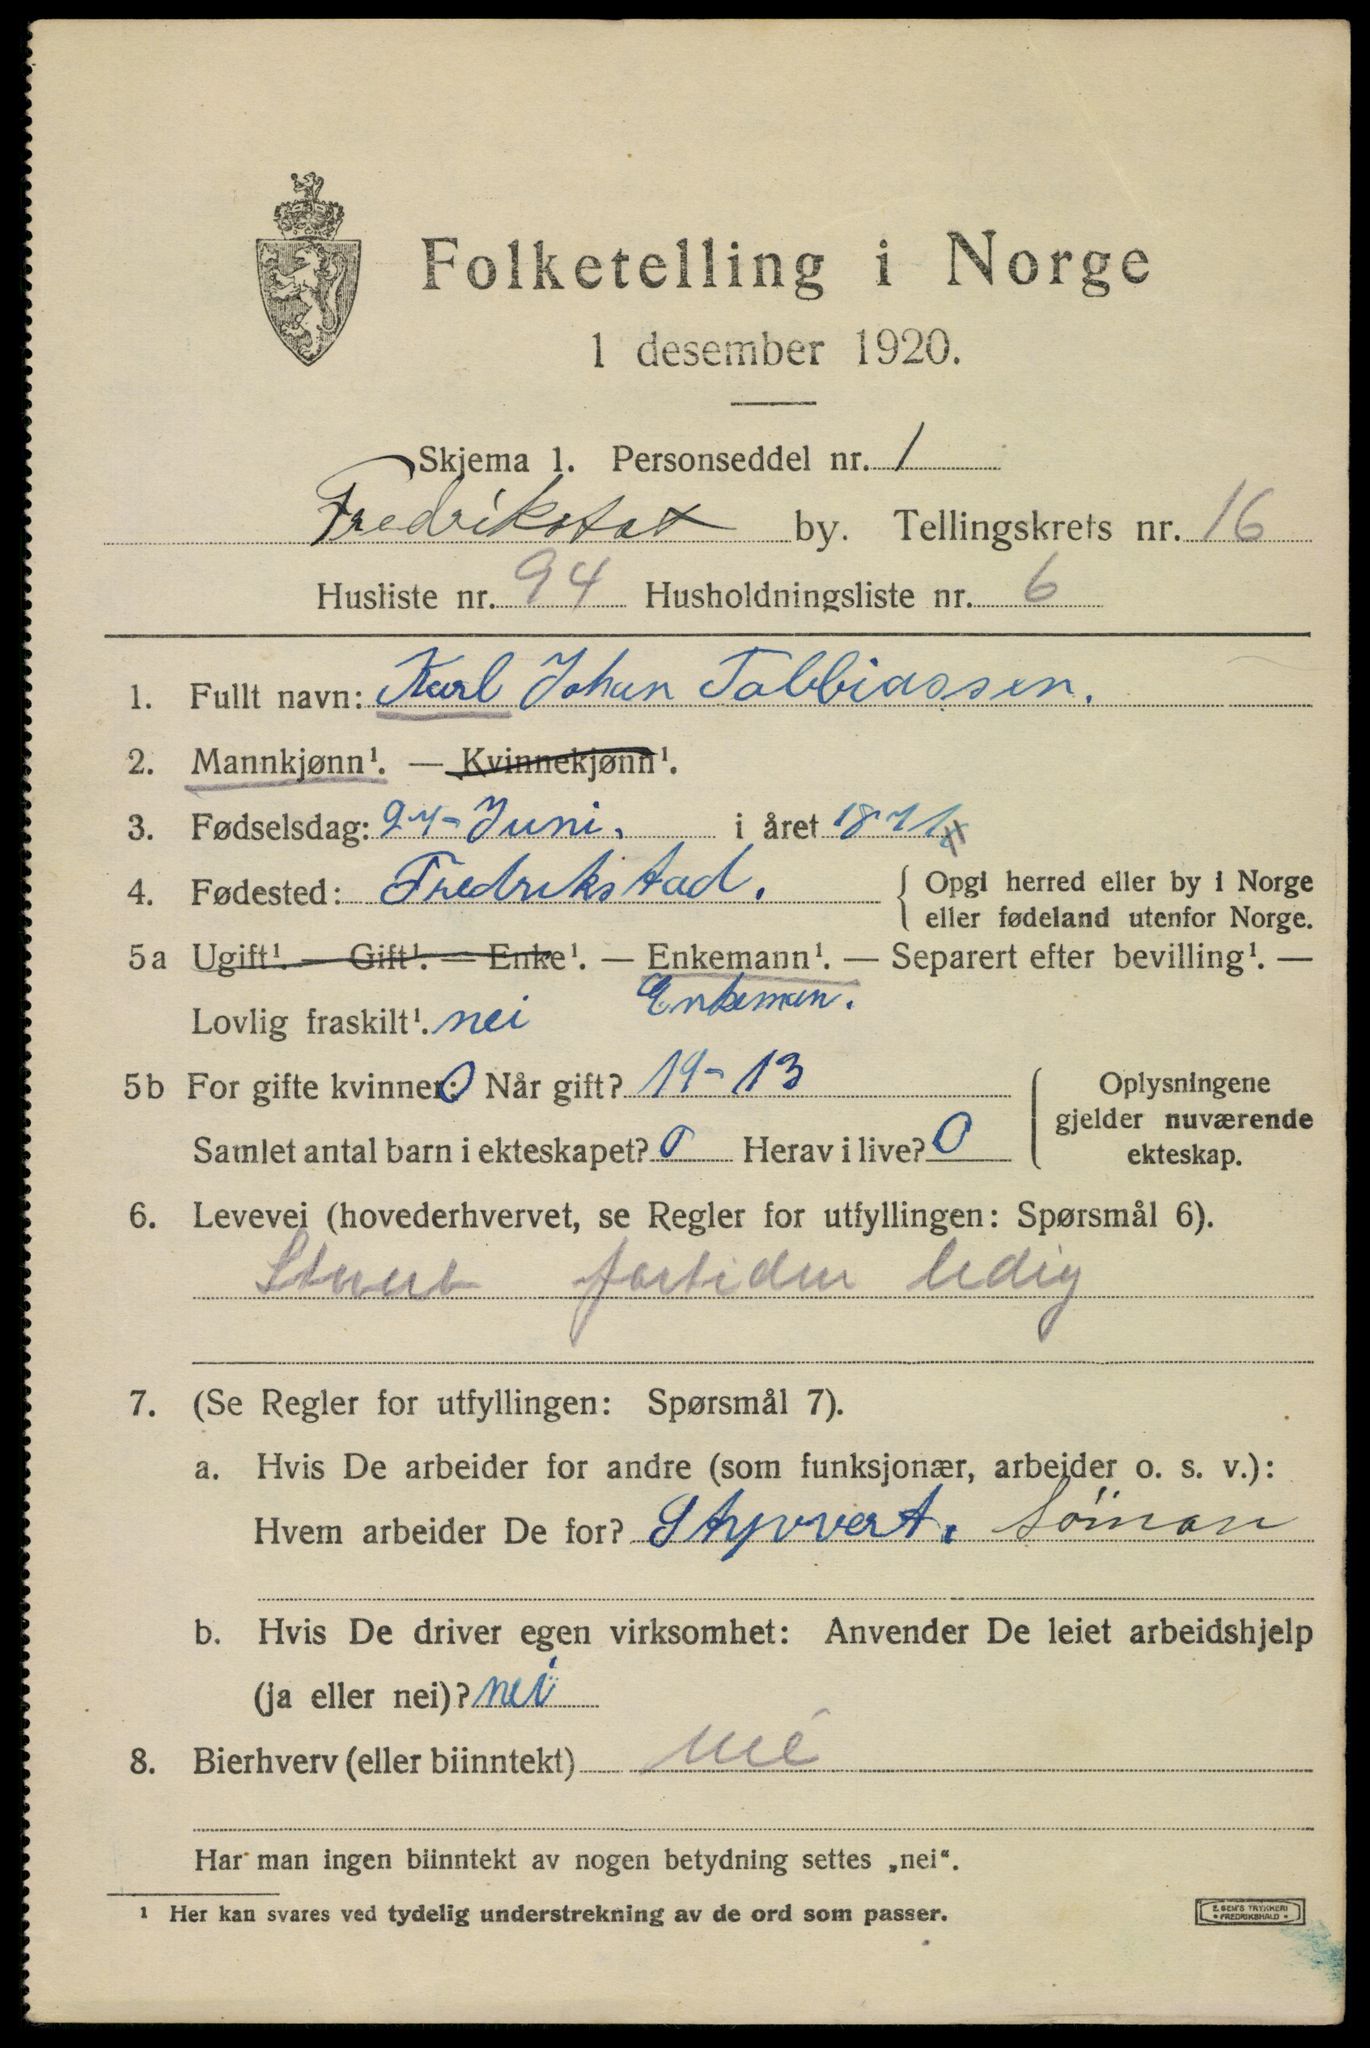 Folketelling i Norge
1 desember 1920.
Skjema 1. Personseddel nr. 1
Fredrikstat by. Tellingskrets nr. 16
Husliste nr. 94 Husholdningsliste nr. 6
1. Fullt navn: Karl Johan Tobbiassen.
2. Mannkjønn¹. — Kvinnekjønn¹.
3. Fødselsdag: 27- Juni. i året 1871
4. Fødested: Fredrikstad. { Opgi herred eller by i Norge
eller fødeland utenfor Norge.
5a Ugift¹. — Gift¹. — Enke¹. — Enkemann¹. — Separert efter bevilling¹. —
Lovlig fraskilt¹. nei Enkeman.
5b For gifte kvinner: 0 Når gift? 19-13
Samlet antal barn i ekteskapet? 0 Herav i live? 0
Oplysningene
gjelder nuværende
ekteskap.
6. Levevei (hovederhvervet, se Regler for utfyllingen: Spørsmål 6).
fortiden ledig
7. (Se Regler for utfyllingen: Spørsmål 7).
a. Hvis De arbeider for andre (som funksjonær, arbeider o. s. v.):
Hvem arbeider De for? Styvvert. Søman
b. Hvis De driver egen virksomhet: Anvender De leiet arbeidshjelp
(ja eller nei)? nei
8. Bierhverv (eller biinntekt) nei
Har man ingen biinntekt av nogen betydning settes „nei“.
¹ Her kan svares ved tydelig understrekning av de ord som passer.
E. SEM'S TRYKKERI
• FREDRIKSHALD •